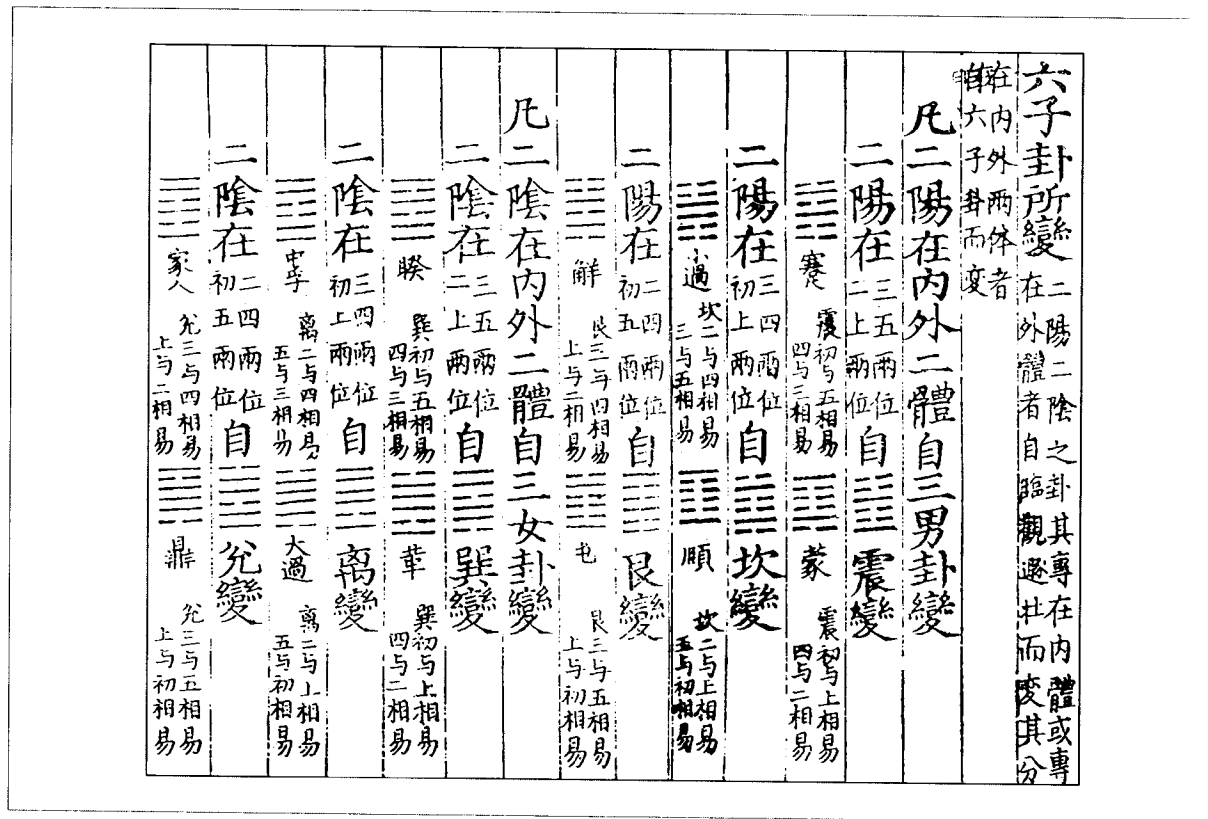 六子卦所變
二陽二陰之卦其專在内體或專
在外體者自臨觀遯壯而变其分
在内外兩体者
自六子卦而变
凡二陽在内外二體自三男卦變
二陽在三五兩位二上兩位自震變
蹇 震初与五相易四与三相易 蒙 震初与上相易四与二相易
二陽在三四兩位初上兩位自坎變
小過 坎二与四相易三与五相易 頤 坎二与上相易五与初相易
二陽在二四兩位初五兩位自艮變
解 艮三与四相易上与二相易 屯 艮三与五相易上与初相易
凡二陰在内外二體自三女卦變
二陰在三五兩位二上兩位自巽變
睽 巽初与五相易四与三相易 革 巽初与上相易四与二相易
二陰在三四兩位初上兩位自离變
中孚 离二与四相易五与三相易 大過 离二与上相易五与初相易
二陰在二四兩位初五兩位自兊變
家人 兊三与四相易上与二相易 鼎 兊三与五相易上与初相易